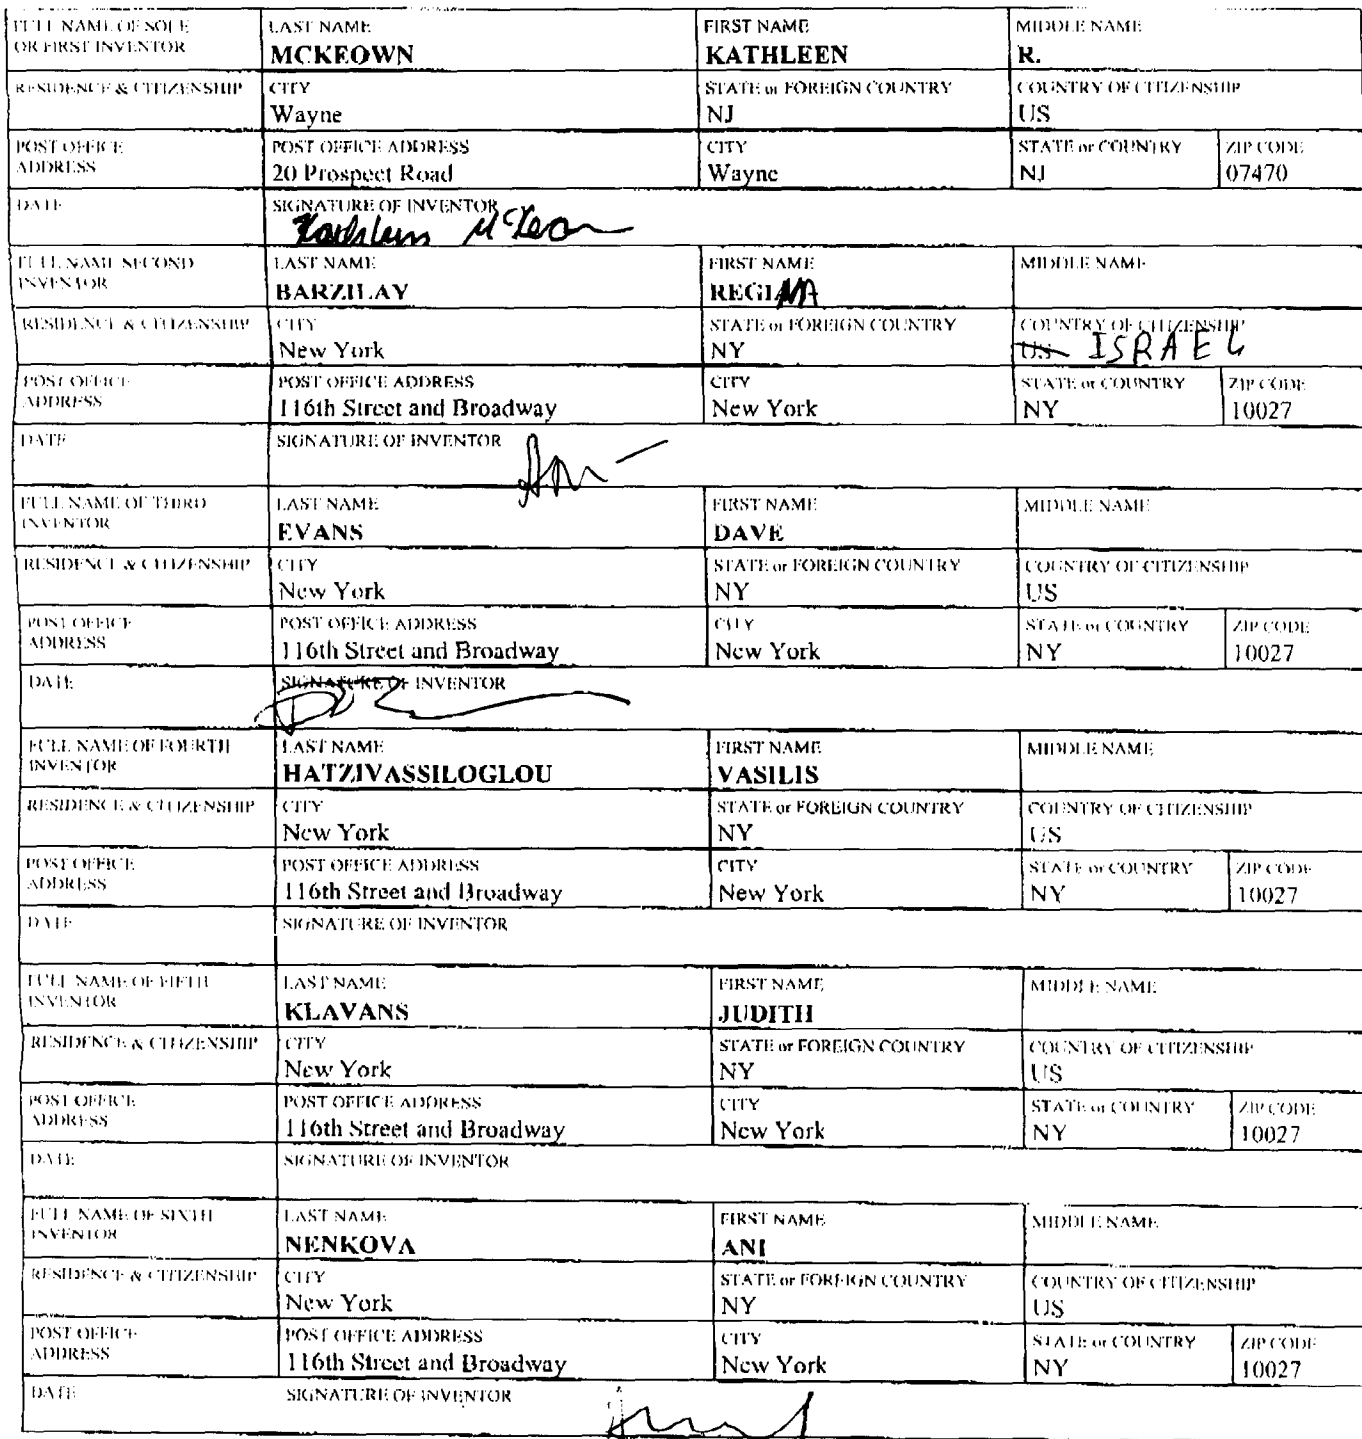 FULL NAME OF SOLE OR FIRST INVENTOR
LAST NAME
MCKEOWN
FIRST NAME
KATHLEEN
MIDDLE NAME
R.
RESIDENCE & CITIZENSHIP
CITY
Wayne
STATE or FOREIGN COUNTRY
NJ
COUNTRY OF CITIZENSHIP
US
POST OFFICE ADDRESS
POST OFFICE ADDRESS
20 Prospect Road
CITY
Wayne
STATE or COUNTRY
NJ
ZIP CODE
07470
DATE
SIGNATURE OF INVENTOR
Kathleen McKeown
FULL NAME SECOND INVENTOR
LAST NAME
BARZILAY
FIRST NAME
REGINA
MIDDLE NAME
RESIDENCE & CITIZENSHIP
CITY
New York
STATE or FOREIGN COUNTRY
NY
COUNTRY OF CITIZENSHIP
US ISRAEL
POST OFFICE ADDRESS
POST OFFICE ADDRESS
116th Street and Broadway
CITY
New York
STATE or COUNTRY
NY
ZIP CODE
10027
DATE
SIGNATURE OF INVENTOR
FULL NAME OF THIRD INVENTOR
LAST NAME
EVANS
FIRST NAME
DAVE
MIDDLE NAME
RESIDENCE & CITIZENSHIP
CITY
New York
STATE or FOREIGN COUNTRY
NY
COUNTRY OF CITIZENSHIP
US
POST OFFICE ADDRESS
POST OFFICE ADDRESS
116th Street and Broadway
CITY
New York
STATE or COUNTRY
NY
ZIP CODE
10027
DATE
SIGNATURE OF INVENTOR
FULL NAME OF FOURTH INVENTOR
LAST NAME
HATZIVASSILOGLOU
FIRST NAME
VASILIS
MIDDLE NAME
RESIDENCE & CITIZENSHIP
CITY
New York
STATE or FOREIGN COUNTRY
NY
COUNTRY OF CITIZENSHIP
US
POST OFFICE ADDRESS
POST OFFICE ADDRESS
116th Street and Broadway
CITY
New York
STATE or COUNTRY
NY
ZIP CODE
10027
DATE
SIGNATURE OF INVENTOR
FULL NAME OF FIFTH INVENTOR
LAST NAME
KLAVANS
FIRST NAME
JUDITH
MIDDLE NAME
RESIDENCE & CITIZENSHIP
CITY
New York
STATE or FOREIGN COUNTRY
NY
COUNTRY OF CITIZENSHIP
US
POST OFFICE ADDRESS
POST OFFICE ADDRESS
116th Street and Broadway
CITY
New York
STATE or COUNTRY
NY
ZIP CODE
10027
DATE
SIGNATURE OF INVENTOR
FULL NAME OF SIXTH INVENTOR
LAST NAME
NENKOVA
FIRST NAME
ANI
MIDDLE NAME
RESIDENCE & CITIZENSHIP
CITY
New York
STATE or FOREIGN COUNTRY
NY
COUNTRY OF CITIZENSHIP
US
POST OFFICE ADDRESS
POST OFFICE ADDRESS
116th Street and Broadway
CITY
New York
STATE or COUNTRY
NY
ZIP CODE
10027
DATE
SIGNATURE OF INVENTOR